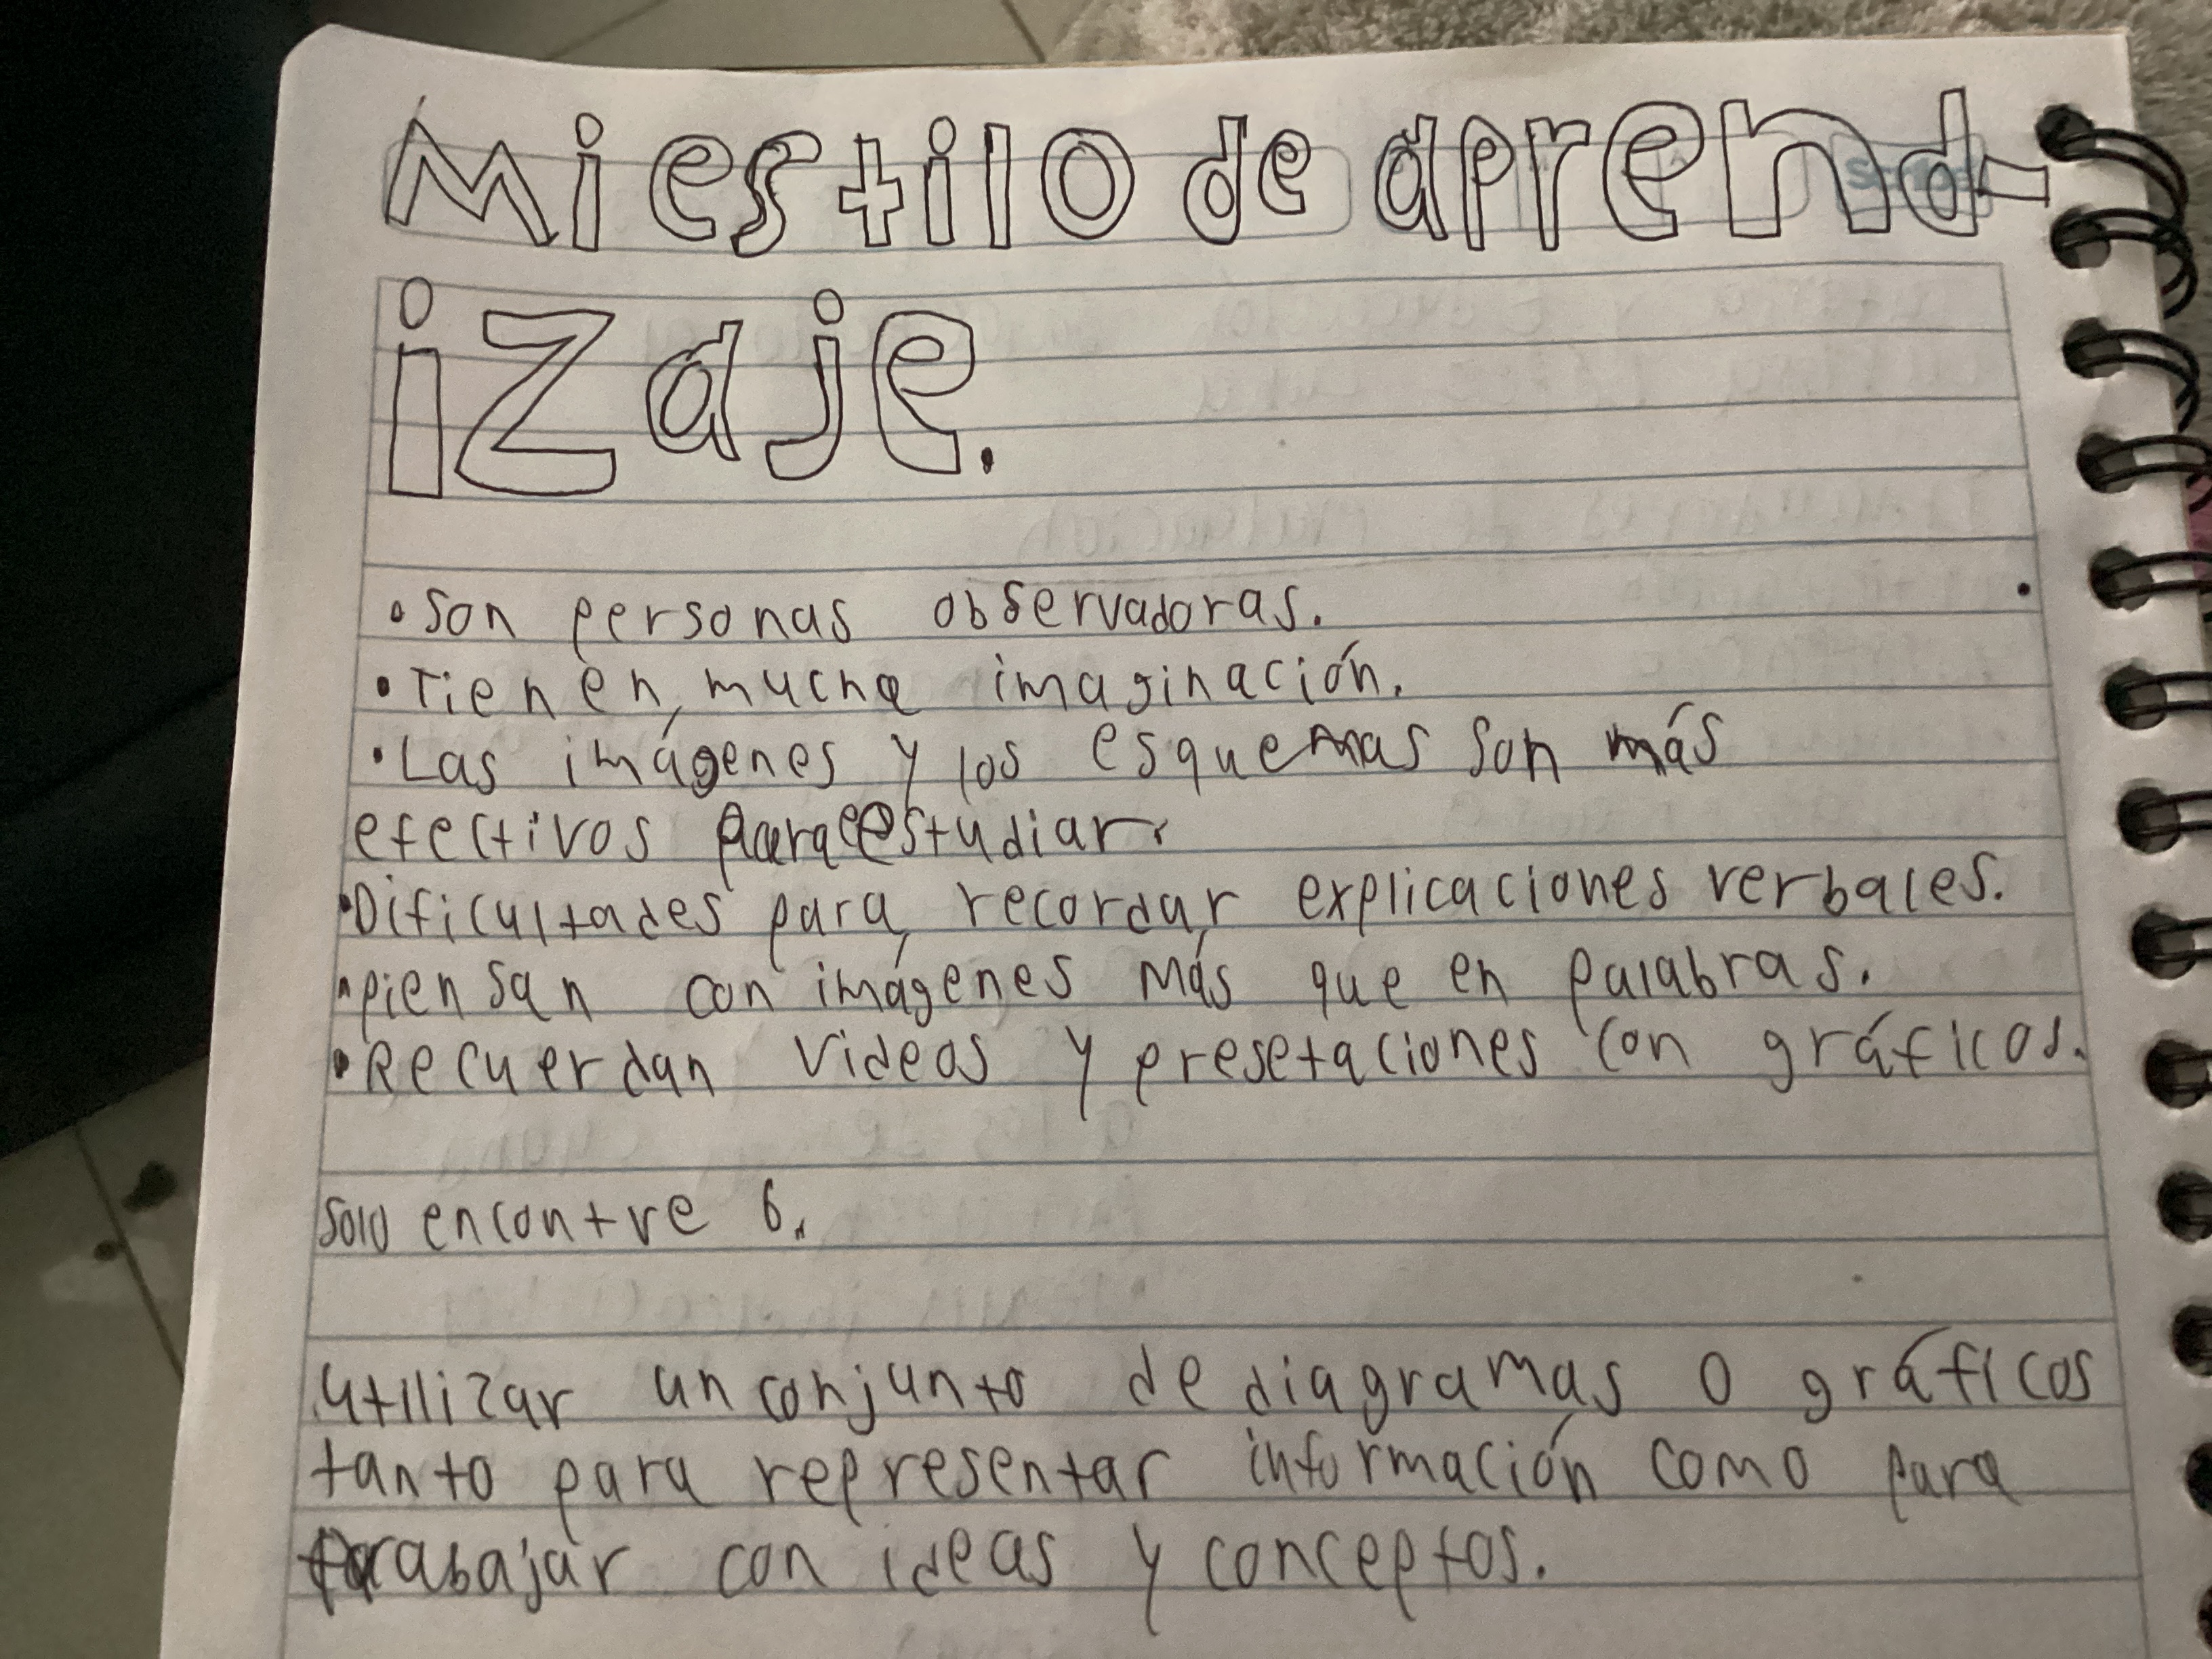 Mi estilo de aprend-
izaje.
• Son personas observadoras.
• Tienen mucha imaginación.
• Las imágenes y los esquemas son más
efectivos para estudiar.
• Dificultades para recordar explicaciones verbales.
• piensan con imágenes más que en palabras.
• Recuerdan videos y presetaciones con gráficos.
solo encontre 6.
.utilizar un conjunto de diagramas o gráficos
tanto para representar información como para
trabajar con ideas y conceptos.